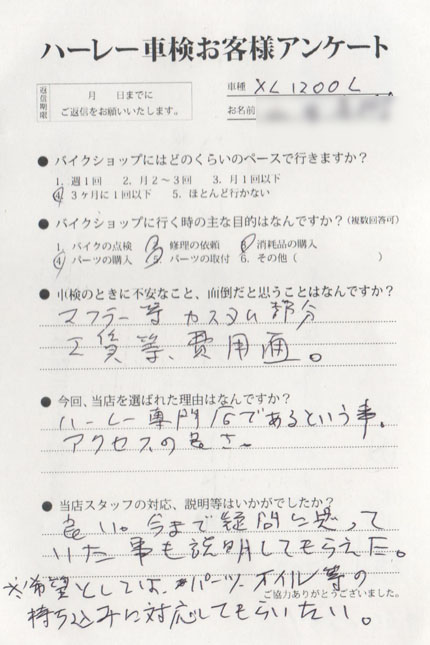 ハーレー車検お客様アンケート
返信期限 月 日までに
ご返信をお願いいたします。
車種 XL1200L
お名前
● バイクショップにはどのくらいのペースで行きますか？
1. 週1回 2. 月2～3回 3. 月1回以下
4. 3ヶ月に1回以下 5. ほとんど行かない
● バイクショップに行く時の主な目的はなんですか？(複数回答可)
1. バイクの点検 2. 修理の依頼 3. 消耗品の購入
4. パーツの購入 5. パーツの取付 6. その他 ( )
● 車検のときに不安なこと、面倒だと思うことはなんですか？
マフラー等 カスタム部分
工賃等、費用面。
● 今回、当店を選ばれた理由はなんですか？
ハーレー専門店であるという事。
アクセスの良さ。
● 当店スタッフの対応、説明等はいかがでしたか？
良い。今まで疑問に思って
いた事も説明してもらえた。
※希望としては、パーツ、オイル等の
ご協力ありがとうございました。
持ち込みに対応してもらいたい。